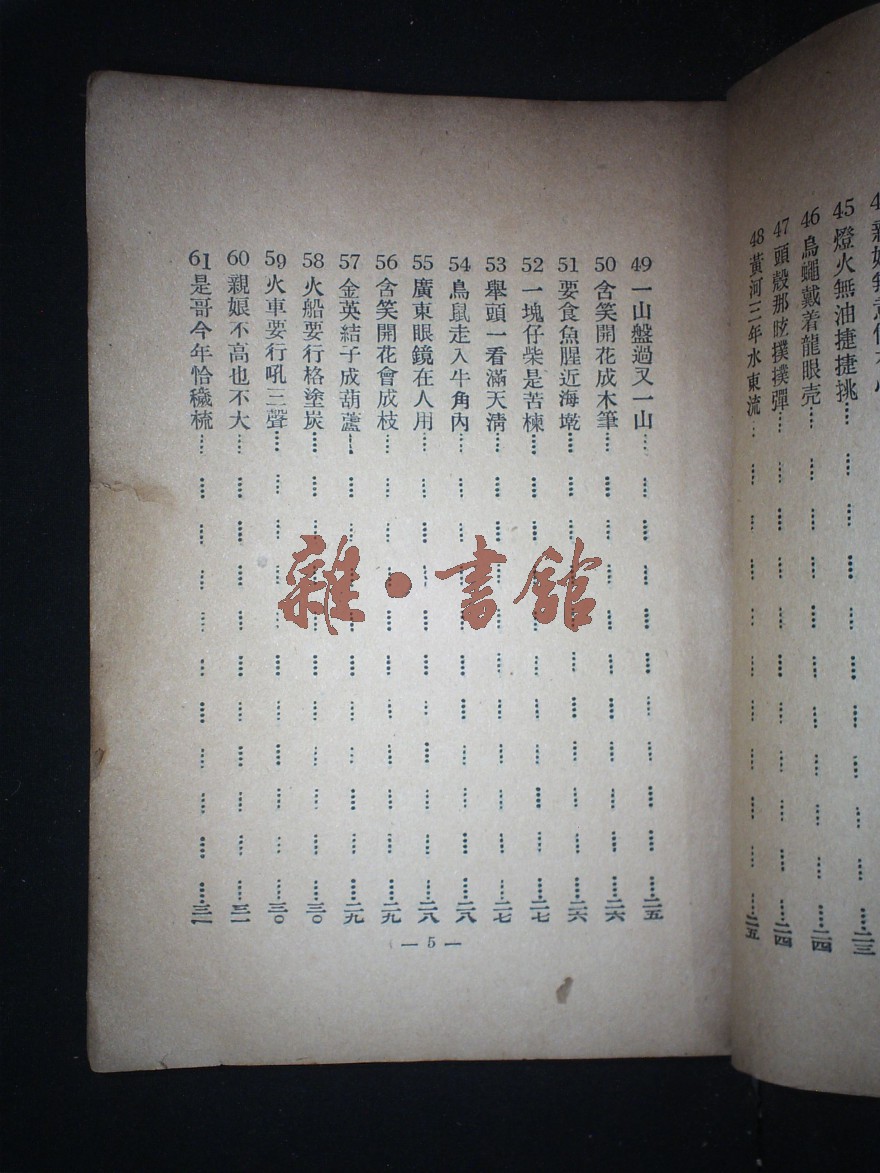 45 燈火無油捷捷挑……二三
46 鳥蠅戴着龍眼壳……二四
47 頭殼那眩撲撲彈……二四
48 黃河三年水東流……二五
49 一山盤過又一山……二五
50 含笑開花成木筆……二六
51 要食魚腥近海墘……二六
52 一塊仔柴是苦楝……二七
53 舉頭一看滿天清……二七
54 鳥鼠走入牛角內……二八
55 廣東眼鏡在人用……二八
56 含笑開花會成枝……二九
57 金英結子成葫蘆……二九
58 火船要行格塗炭……三〇
59 火車要行吼三聲……三〇
60 親娘不高也不大……三一
61 是哥今年恰穢梳……三一
— 5 —
雜·書館